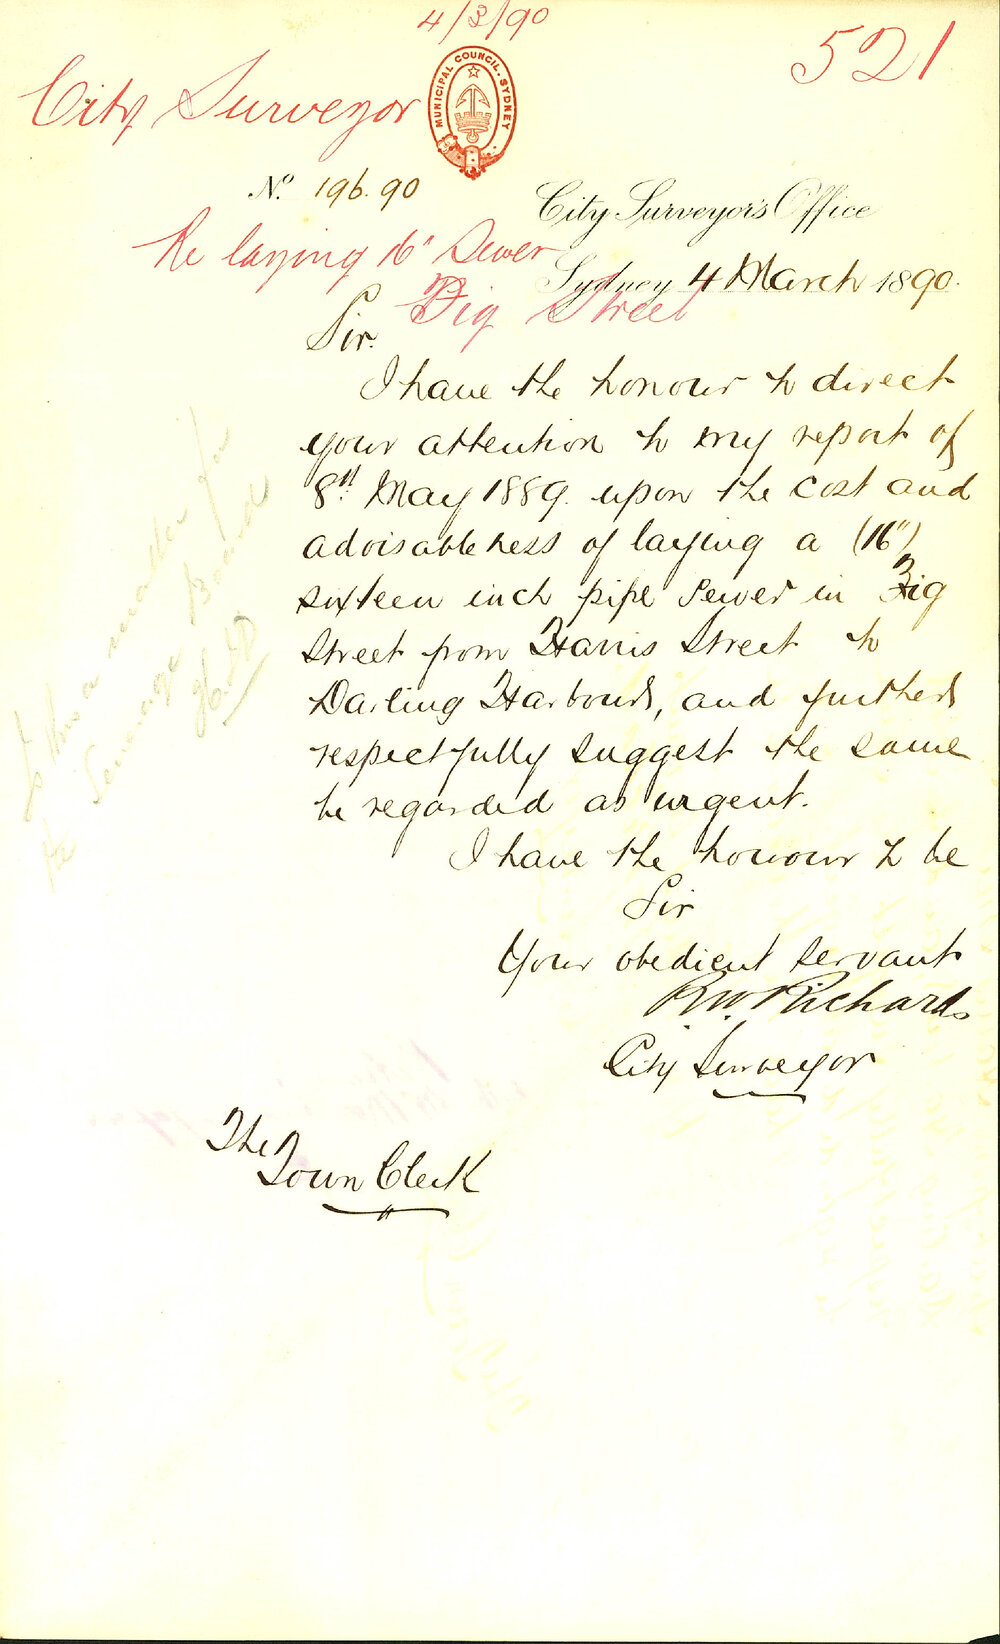 4/3/90
521
City Surveyor
MUNICIPAL COUNCIL. SYDNEY
No. 196.90
City Surveyor's Office
Re laying 16" Sewer
Sydney 4 March 1890.
Fig Street
Sir.
I have the honour to direct
your attention to my report of
8th May 1889. upon the cost and
advisableness of laying a (16")
sixteen inch pipe Sewer in Fig
Street from Harris Street to
Darling Harbour, and further
respectfully suggest the same
be regarded as urgent.
I have the honour to be
Sir
Your obedient servant
R.W. Richards
City Surveyor
The
Town Clerk
Is this a matter for
Sewerage Board